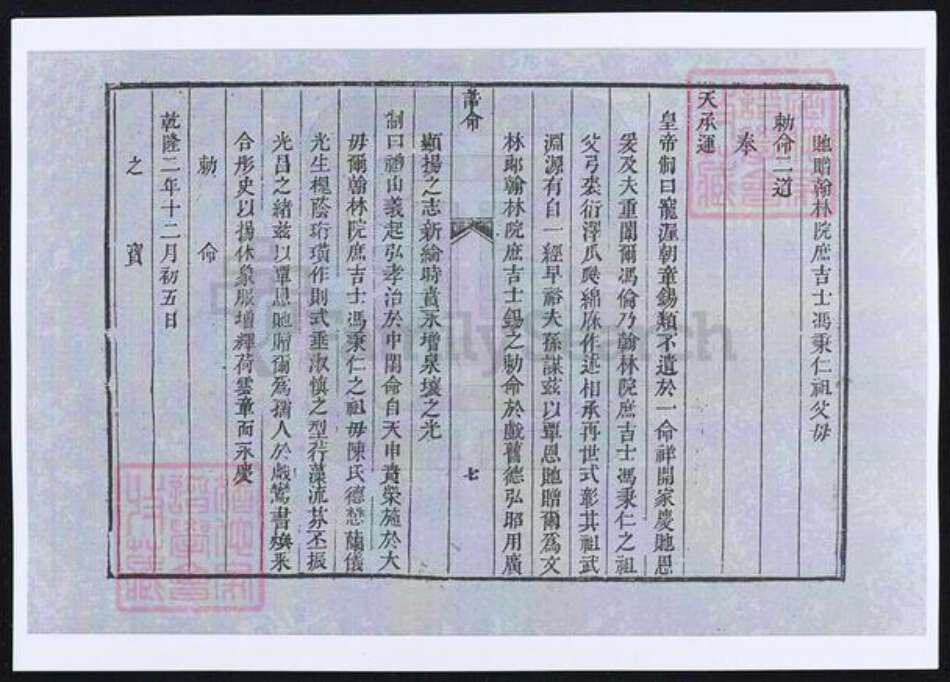 貤贈翰林院庶吉士馮秉仁祖父母
勅命二道
奉
天承運
皇帝制曰寵渥朝章錫類不遺於一命祥開家慶貤恩
爰及夫重闈爾馮倫乃翰林院庶吉士馮秉仁之祖
父弓裘衍澤瓜瓞綿庥作述相承再世式彰其祖武
淵源有自一經早裕夫孫謀茲以覃恩貤贈爾爲文
林郎翰林院庶吉士錫之勅命於戲舊德弘昭用廣
誥命
七
顯揚之志新綸時賁永增泉壤之光
制曰禮由義起弘孝治於中闈命自天申賁榮施於大
母爾翰林院庶吉士馮秉仁之祖母陳氏德懋蘭儀
光生槐蔭珩璜作則式垂淑慎之型荇藻流芬丕振
光昌之緒茲以覃恩貤贈爾爲孺人於戲鸞書煥采
合彤史以揚休象服增輝荷雲章而永慶
勅命
乾隆二年十二月初五日
之寶
FamilySearch